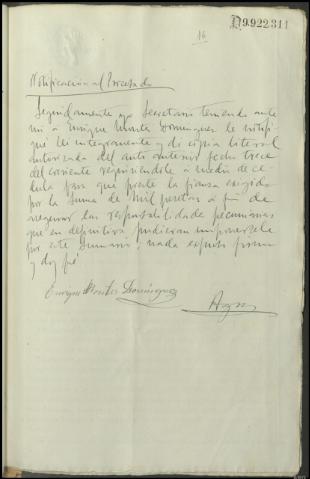 D9.922.311
16
Notificación al Procesado
Seguidamente yo Secretario teniendo ante
mi a Enrique Montes Dominguez le notifi
qué leí integramente y di copia literal
autorizada del auto anterior fecha trece
del corriente requiriendole a medio de ce-
dula para que preste la fianza exigida
por la suma de mil pesetas a fin de
asegurar las responsabilidades pecuniarias
que en definitiva pudieran imponersele
por este sumario; nada expuso firma
y doy fé
Enrique Montes Dominguez